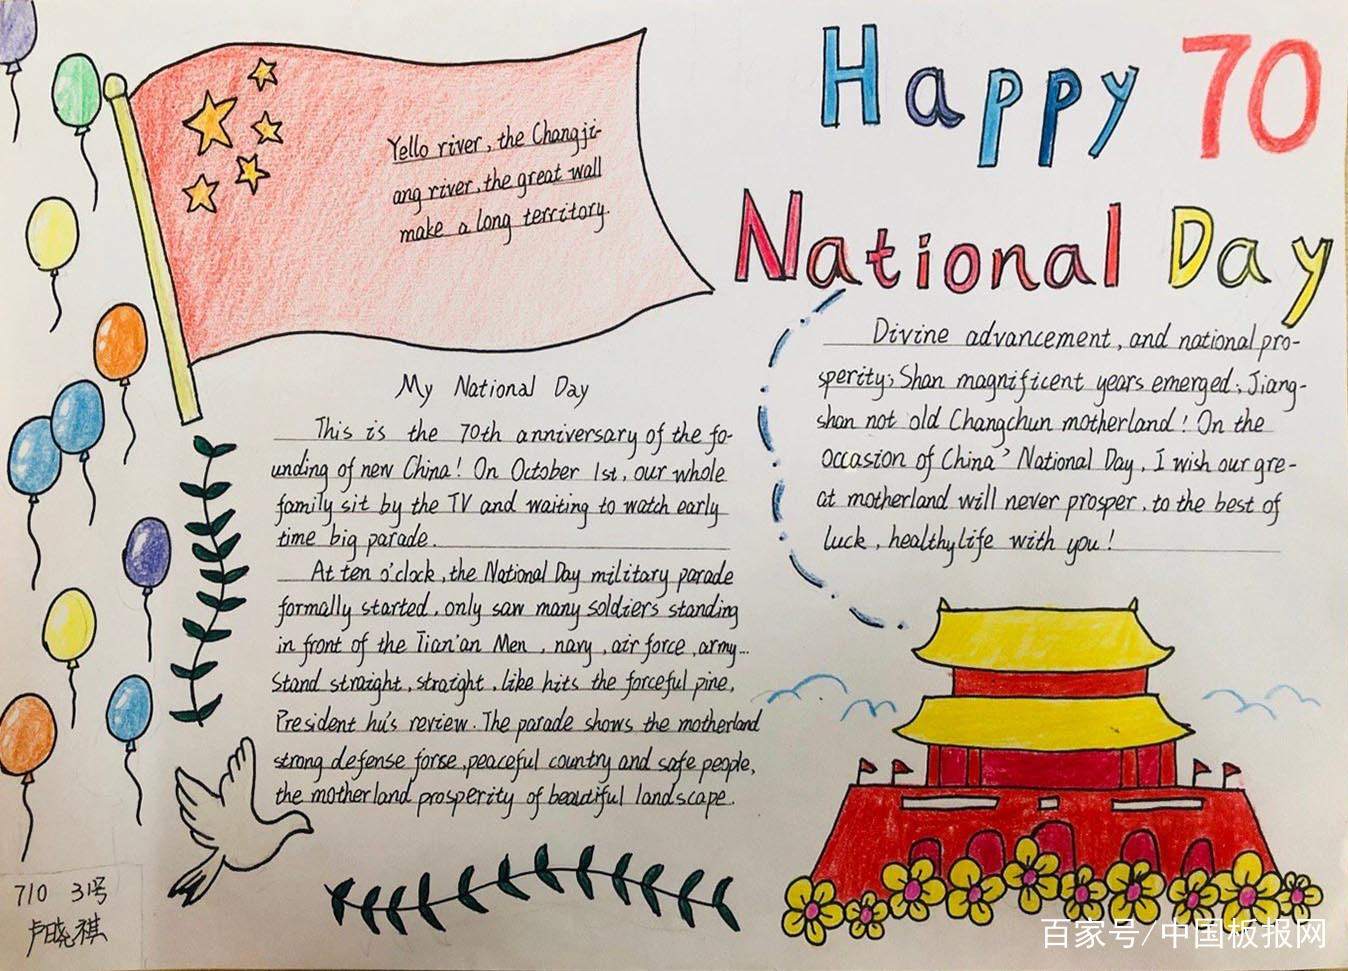 Happy 70
National Day
Yello river, the Changji-
ang river, the great wall
make a long territory.
My National Day
This is the 70th anniversary of the fo-
unding of new China! On October 1st, our whole
family sit by the TV and waiting to watch early
time big parade.
At ten o'clock, the National Day military parade
formally started, only saw many soldiers standing
in front of the Tian'an Men, navy, air force, army...
Stand straight, straight, like hits the forceful pine,
President hu's review. The parade shows the motherland
strong defense forse, peaceful country and safe people,
the motherland prosperity of beautiful landscape.
Divine advancement, and national pro-
sperity; Shan magnificent years emerged; Jiang-
shan not old Changchun motherland! On the
occasion of China' National Day, I wish our gre-
at motherland will never prosper, to the best of
luck, healthy life with you!
710 31号
卢晓祺
百家号/中国板报网